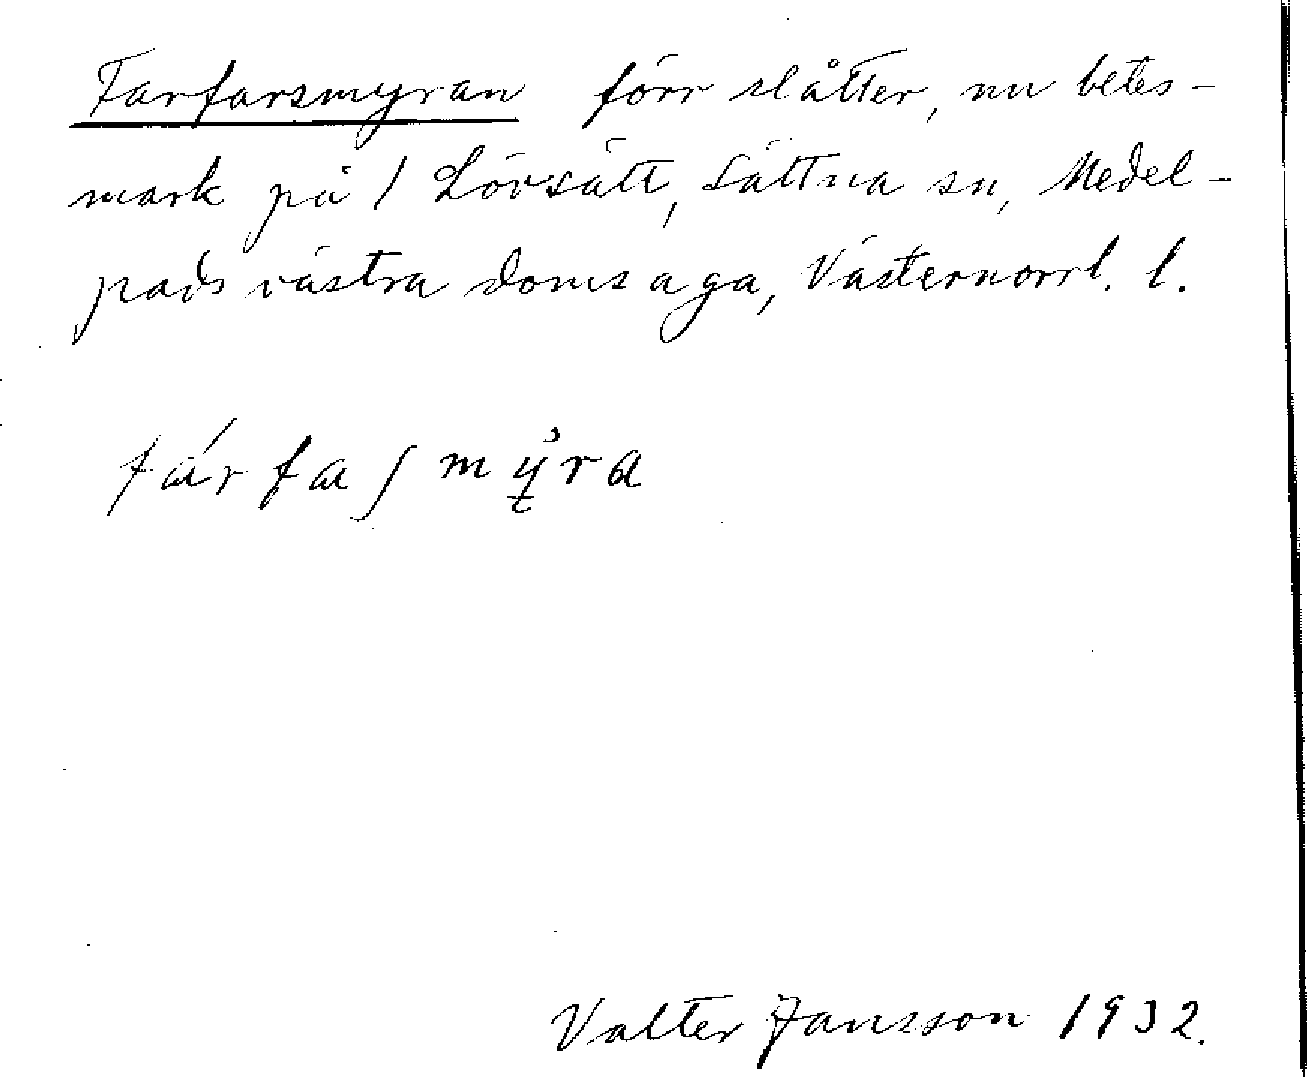 Farfarsmyran förr slåtter, nu betes-
mark på 1 Lövsätt, Sättna sn, Medel-
pads västra domsaga, Västernorrl. l.
fárfaʃmy̆ra
Valter Jansson 1932.